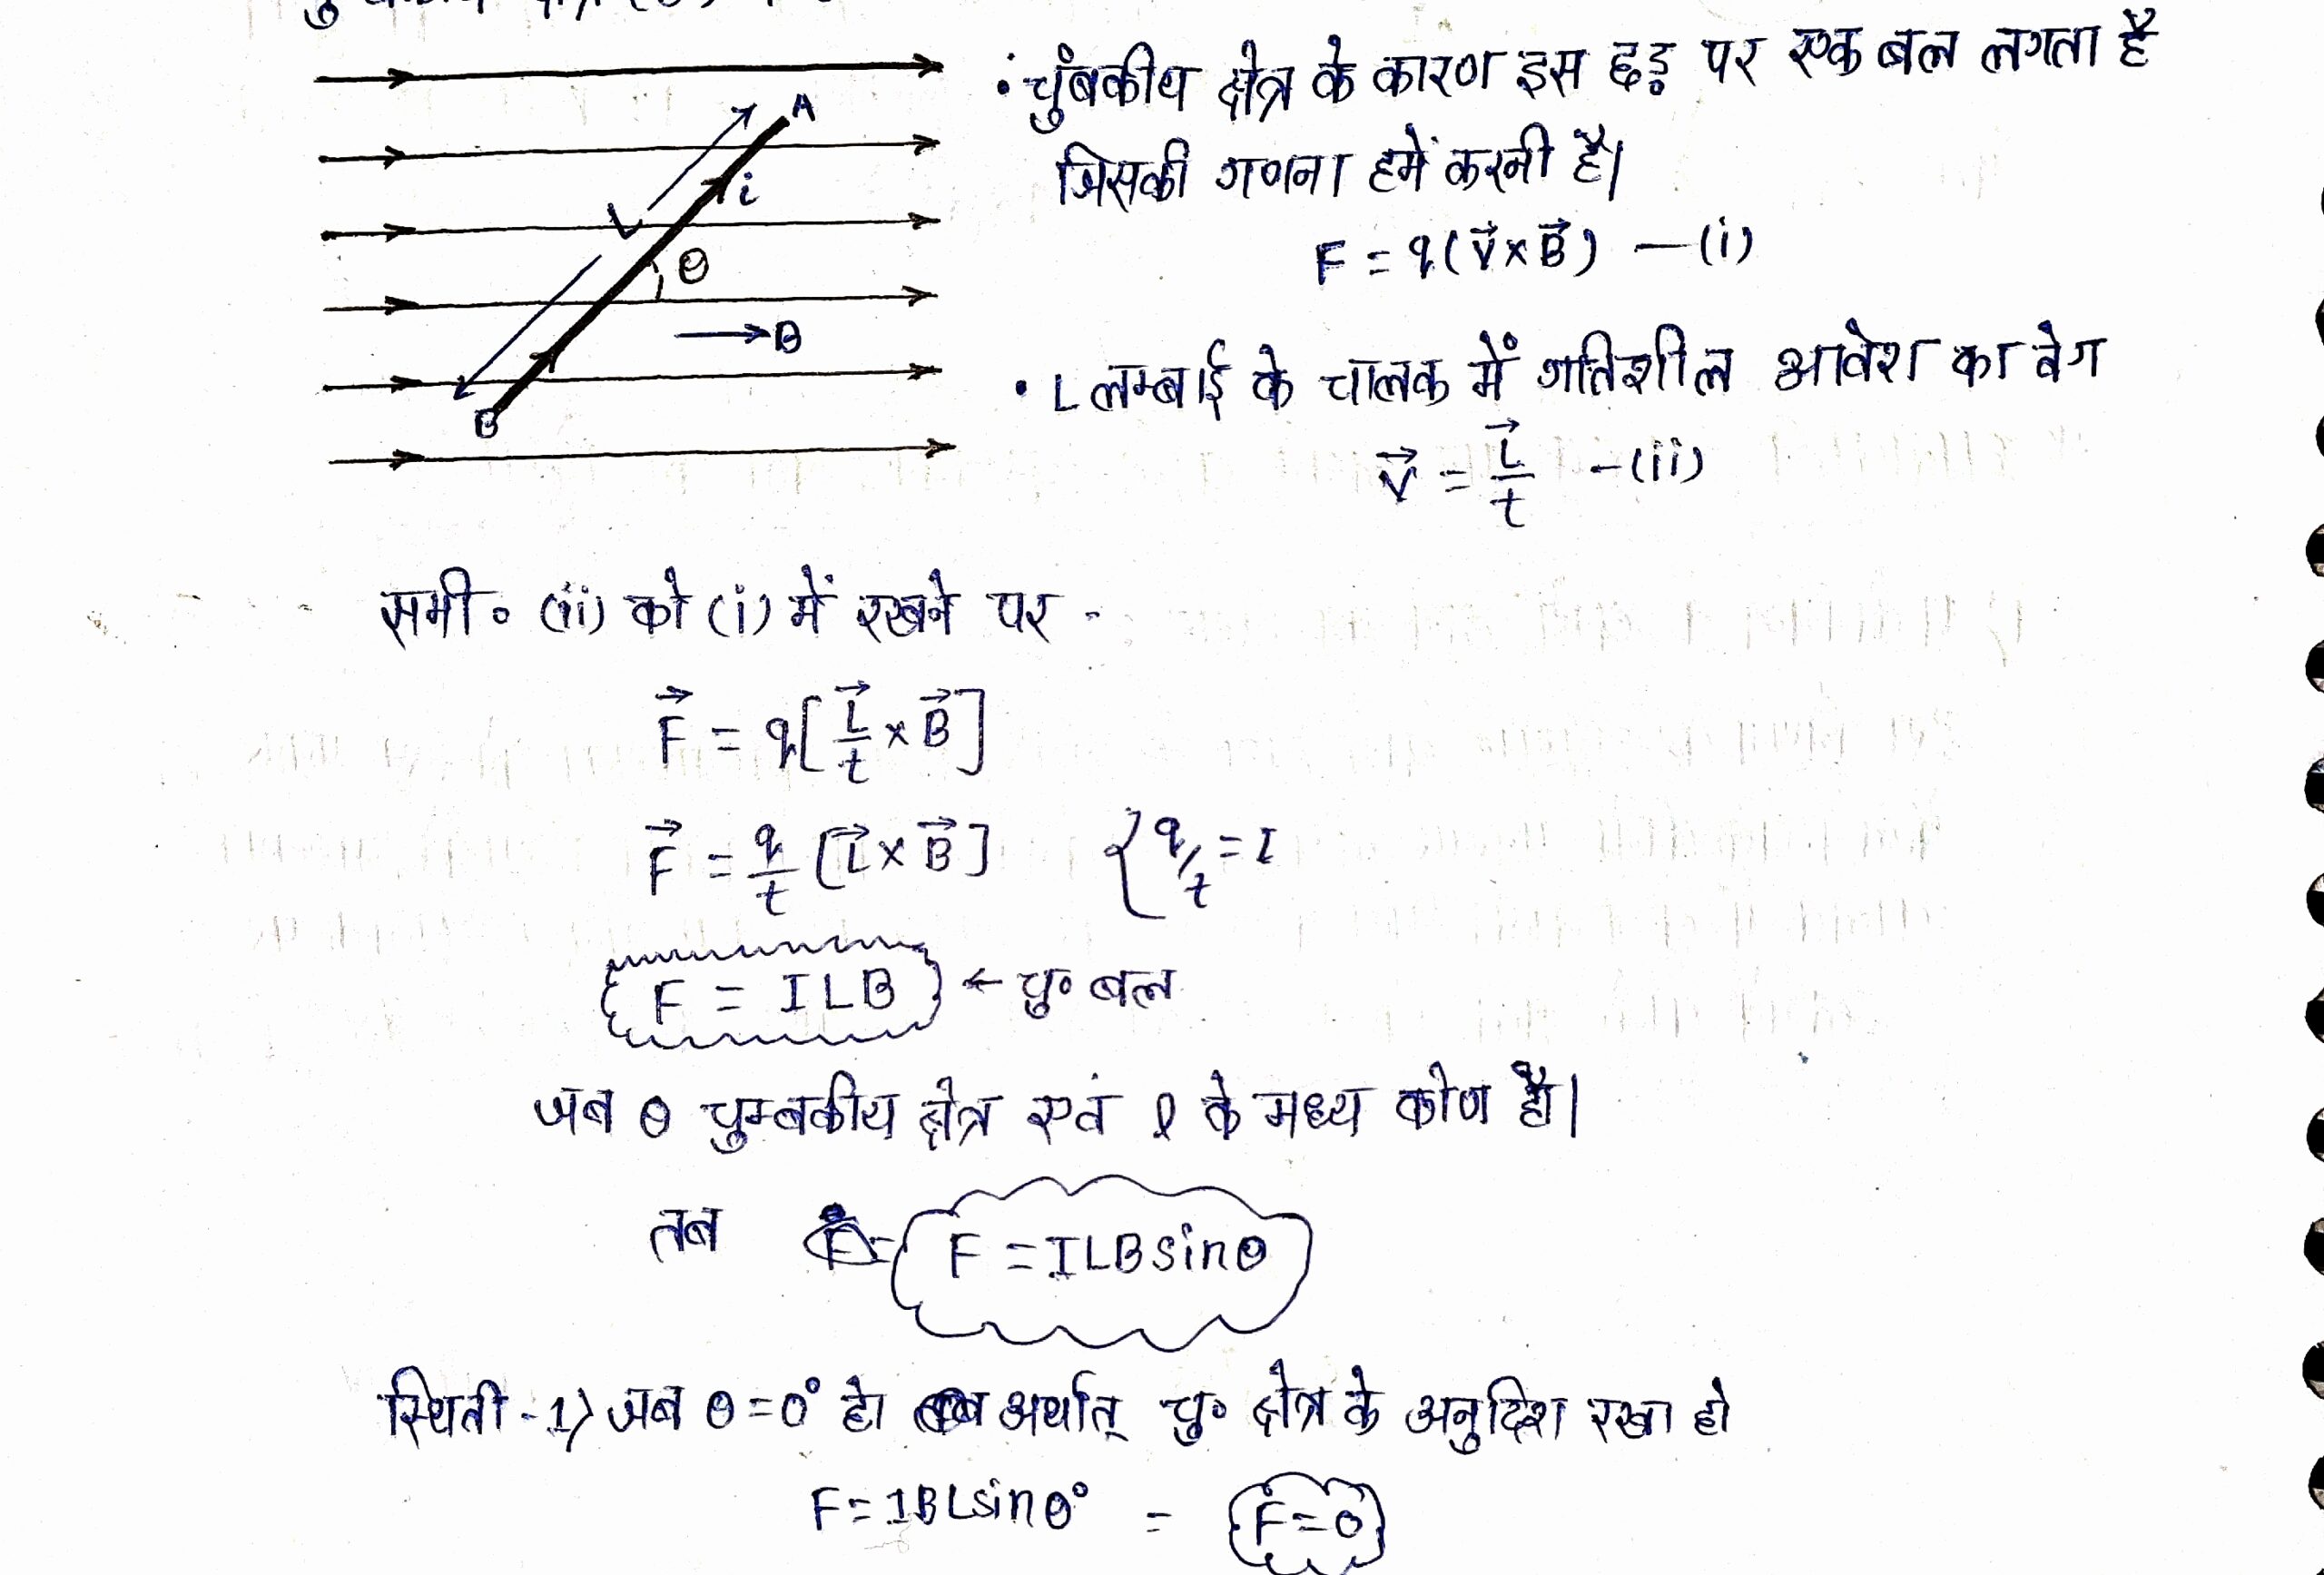 • चुंबकीय क्षेत्र के कारण इस छड़ पर एक बल लगता है
जिसकी गणना हमें करनी है।
F = q(v⃗ × B⃗) —(i)
A
i
L
θ
→B
B
• L लम्बाई के चालक में गतिशील आवेश का वेग
v⃗ = L⃗/t -(ii)
समी॰ (ii) को (i) में रखने पर -
F⃗ = q[L⃗/t × B⃗]
F⃗ = q/t [L⃗ × B⃗] {q/t = I
F = ILB ← चु॰ बल
जब θ चुम्बकीय क्षेत्र एवं l के मध्य कोण हो।
तब F = ILBsinθ
स्थिती -1) जब θ = 0° हो अर्थात् चु॰ क्षेत्र के अनुदिश रखा हो
F = IBLsin0° = F = 0